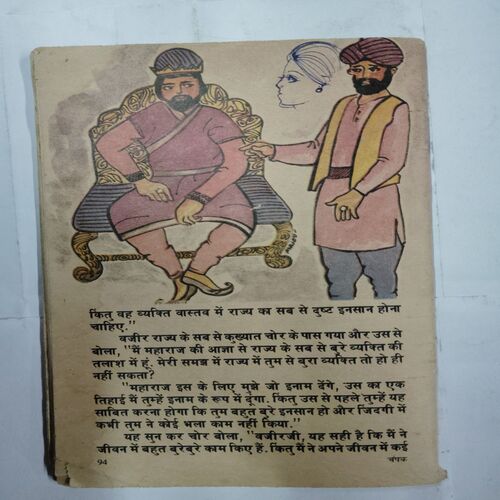 किंतु वह व्यक्ति वास्तव में राज्य का सब से दुष्ट इनसान होना
चाहिए."
वजीर राज्य के सब से कुख्यात चोर के पास गया और उस से
बोला, "मैं महाराज की आज्ञा से राज्य के सब से बुरे व्यक्ति की
तलाश में हूं. मेरी समझ में राज्य में तुम से बुरा व्यक्ति तो हो ही
नहीं सकता?
"महाराज इस के लिए मुझे जो इनाम देंगे, उस का एक
तिहाई मैं तुम्हें इनाम के रूप में दूंगा. किंतु उस से पहले तुम्हें यह
साबित करना होगा कि तुम बहुत बुरे इनसान हो और जिंदगी में
कभी तुम ने कोई भला काम नहीं किया."
यह सुन कर चोर बोला, "वजीरजी, यह सही है कि मैं ने
जीवन में बहुत बुरेबुरे काम किए हैं. किंतु मैं ने अपने जीवन में कई
94 चंपक